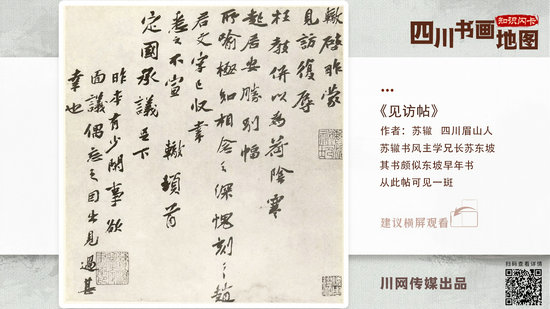 轍啓昨蒙
見訪復辱
枉教併以為荷陰寒
起居安勝別幅
所喻極知相念之深愧刻之趙
君文字已收幸
悉之不宣 轍頓首
定國承議足下
昨本有少閑事欲
面議偶忘之因出見過甚
幸也
四川书画
知识闪卡
地图
《见访帖》
作者:苏辙 四川眉山人
苏辙书风主学兄长苏东坡
其书颇似东坡早年书
从此帖可见一斑
建议横屏观看
川网传媒出品
扫码查看详情